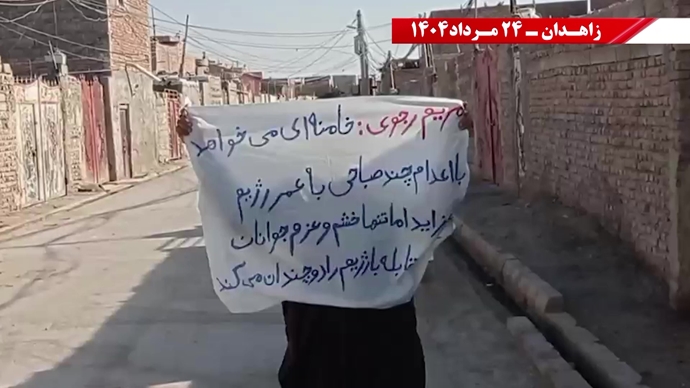 زاهدان ــ ۲۴ مرداد ۱۴۰۴
مریم رجوی: خامنه‌ای می خواهد
با اعدام چند صباحی با عمر رژیم
افزاید اما تنها خشم و عزم جوانان
مقابله با رژیم را دو چندان می کند